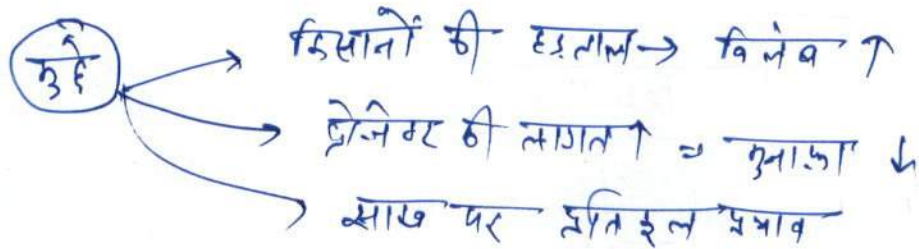 मुद्दे
किसानों की हड़ताल → विलंब ↑
प्रोजेक्ट की लागत ↑ = मुनाफा ↓
साख पर प्रतिकूल प्रभाव